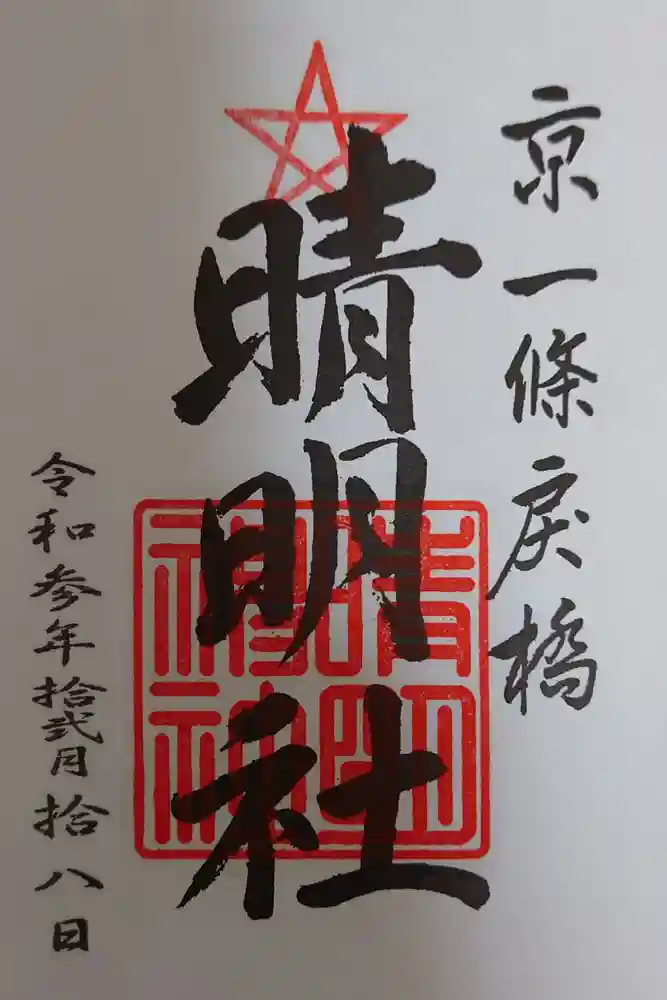 京一條戻橋
晴明社
令和参年拾弐月拾八日